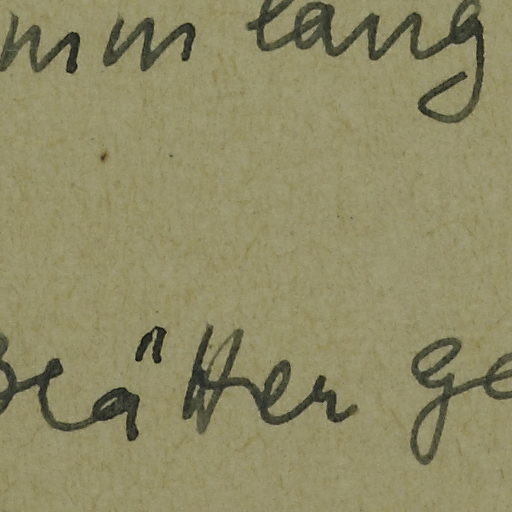 mm lang
Blätter ge